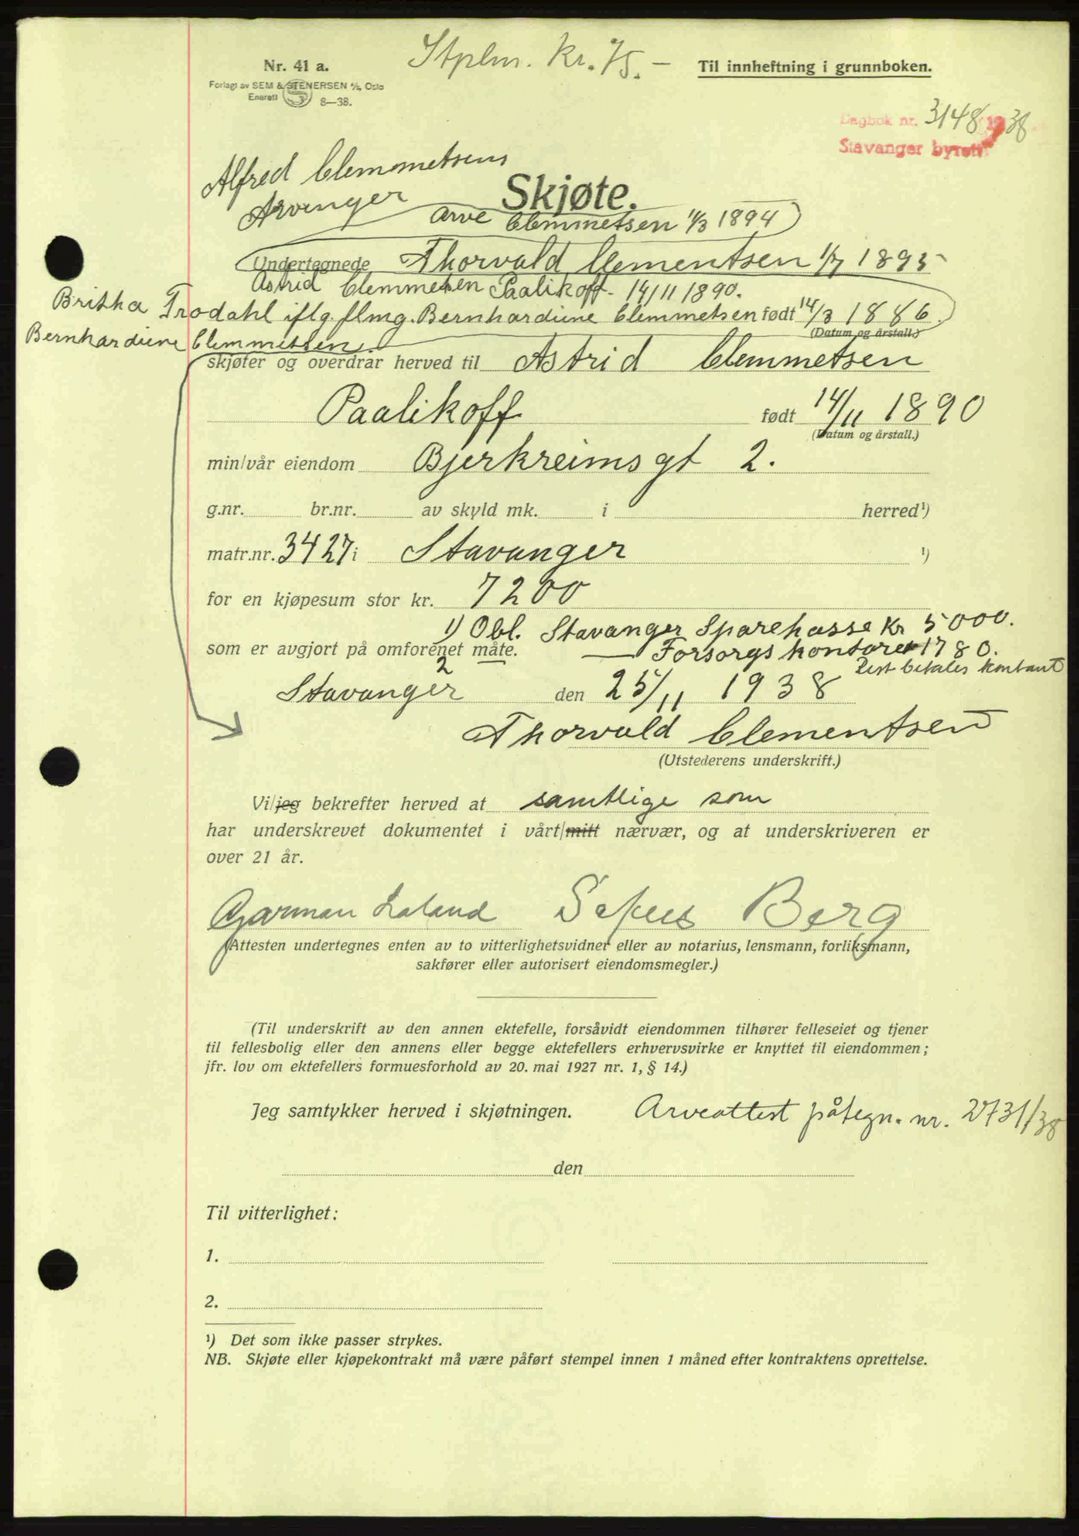 Nr. 41 a.
Forlagt av SEM & STENERSEN A/S, Oslo
Enerett 8—38.
Stplm. Kr. 75.—
Til innheftning i grunnboken.
Dagbok nr. 3148 1938
Stavanger byrett
Alfred Clemmetsens
Arvinger
Skjøte.
Arve Clemmetsen 11/3 1894
Undertegnede Thorvald Clementsen 1/7 1895
Astrid Clemmetsen Paalikoff - 14/11 1890.
Britha Trodahl iflg. flmg. Bernhardine Clemmetsen født 14/3 1886.
(Datum og årstall.)
Bernhardine Clemmetsen
skjøter og overdrar herved til Astrid Clemmetsen
Paalikoff født 14/11 1890
(Datum og årstall.)
min/vår eiendom Bjerkreimsgt 2.
g.nr. br.nr. av skyld mk. i herred¹)
matr.nr. 3427 i Stavanger ¹)
for en kjøpesum stor kr. 7200
1) Obl. Stavanger Sparekasse Kr 5000.
som er avgjort på omforenet måte. 2 — Forsorgskontoret 1780.
Rest betales kontant
Stavanger den 25/11 1938
Thorvald Clementsen
(Utstederens underskrift.)
Vi/jeg bekrefter herved at samtlige som
har underskrevet dokumentet i vårt/mitt nærvær, og at underskriveren er
over 21 år.
Garman Laland Berg
(Attesten undertegnes enten av to vitterlighetsvidner eller av notarius, lensmann, forliksmann,
sakfører eller autorisert eiendomsmegler.)
(Til underskrift av den annen ektefelle, forsåvidt eiendommen tilhører felleseiet og tjener
til fellesbolig eller den annens eller begge ektefellers erhvervsvirke er knyttet til eiendommen;
jfr. lov om ektefellers formuesforhold av 20. mai 1927 nr. 1, § 14.)
Jeg samtykker herved i skjøtningen. Arveattest påtegn. nr. 2731/38
den
Til vitterlighet:
1.
2.
¹) Det som ikke passer strykes.
NB. Skjøte eller kjøpekontrakt må være påført stempel innen 1 måned efter kontraktens oprettelse.